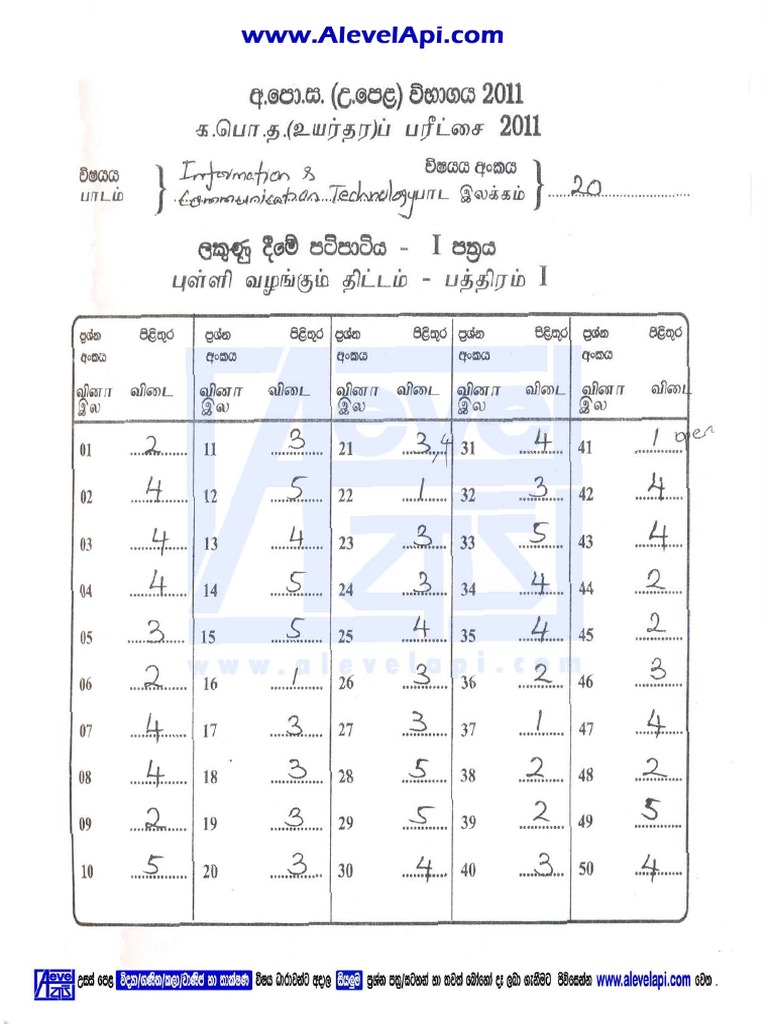 www.AlevelApi.com
අ.පො.ස. (උ.පෙළ) විභාගය 2011
க.பொ.த.(உயர்தர)ப் பரீட்சை 2011
විෂයය Information & විෂයය අංකය
பாடம் Communication Technology பாட இலக்கம் 20
ලකුණු දීමේ පටිපාටිය - I පත්‍රය
புள்ளி வழங்கும் திட்டம் - பத்திரம் I
ප්‍රශ්න පිළිතුර ප්‍රශ්න පිළිතුර ප්‍රශ්න පිළිතුර ප්‍රශ්න පිළිතුර ප්‍රශ්න පිළිතුර
අංකය අංකය අංකය අංකය අංකය
வினா விடை வினா விடை வினா விடை வினா விடை வினா விடை
இல இல இல இல இல
01 2 11 3 21 3,4 31 4 41 1
02 4 12 5 22 1 32 3 42 4
03 4 13 4 23 3 33 5 43 4
04 4 14 5 24 3 34 4 44 2
05 3 15 5 25 4 35 4 45 2
www.alevelapi.com
06 2 16 1 26 3 36 2 46 3
07 4 17 3 27 3 37 1 47 4
08 4 18 3 28 5 38 2 48 2
09 2 19 3 29 5 39 2 49 5
10 5 20 3 30 4 40 3 50 4
උසස් පෙළ විද්‍යා/ගණිත/කලා/වාණිජ හා තාක්ෂණ විෂය ධාරාවන්ට අදාල සියලුම ප්‍රශ්න පත්‍ර/සටහන් හා තවත් බොහෝ දෑ ලබා ගැනීමට පිවිසෙන්න www.alevelapi.com වෙත .